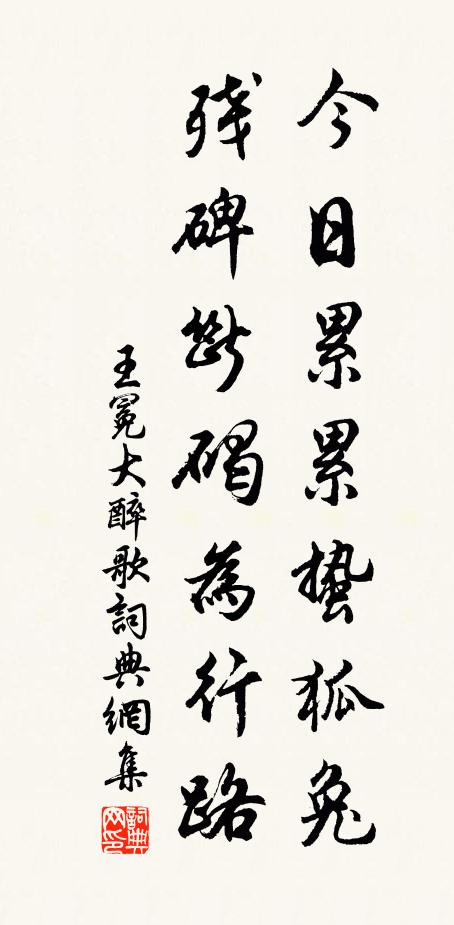 今日累累蟄狐兔
殘碑斷碣為行路
王冕大醉歌詞典網集
詞典网印